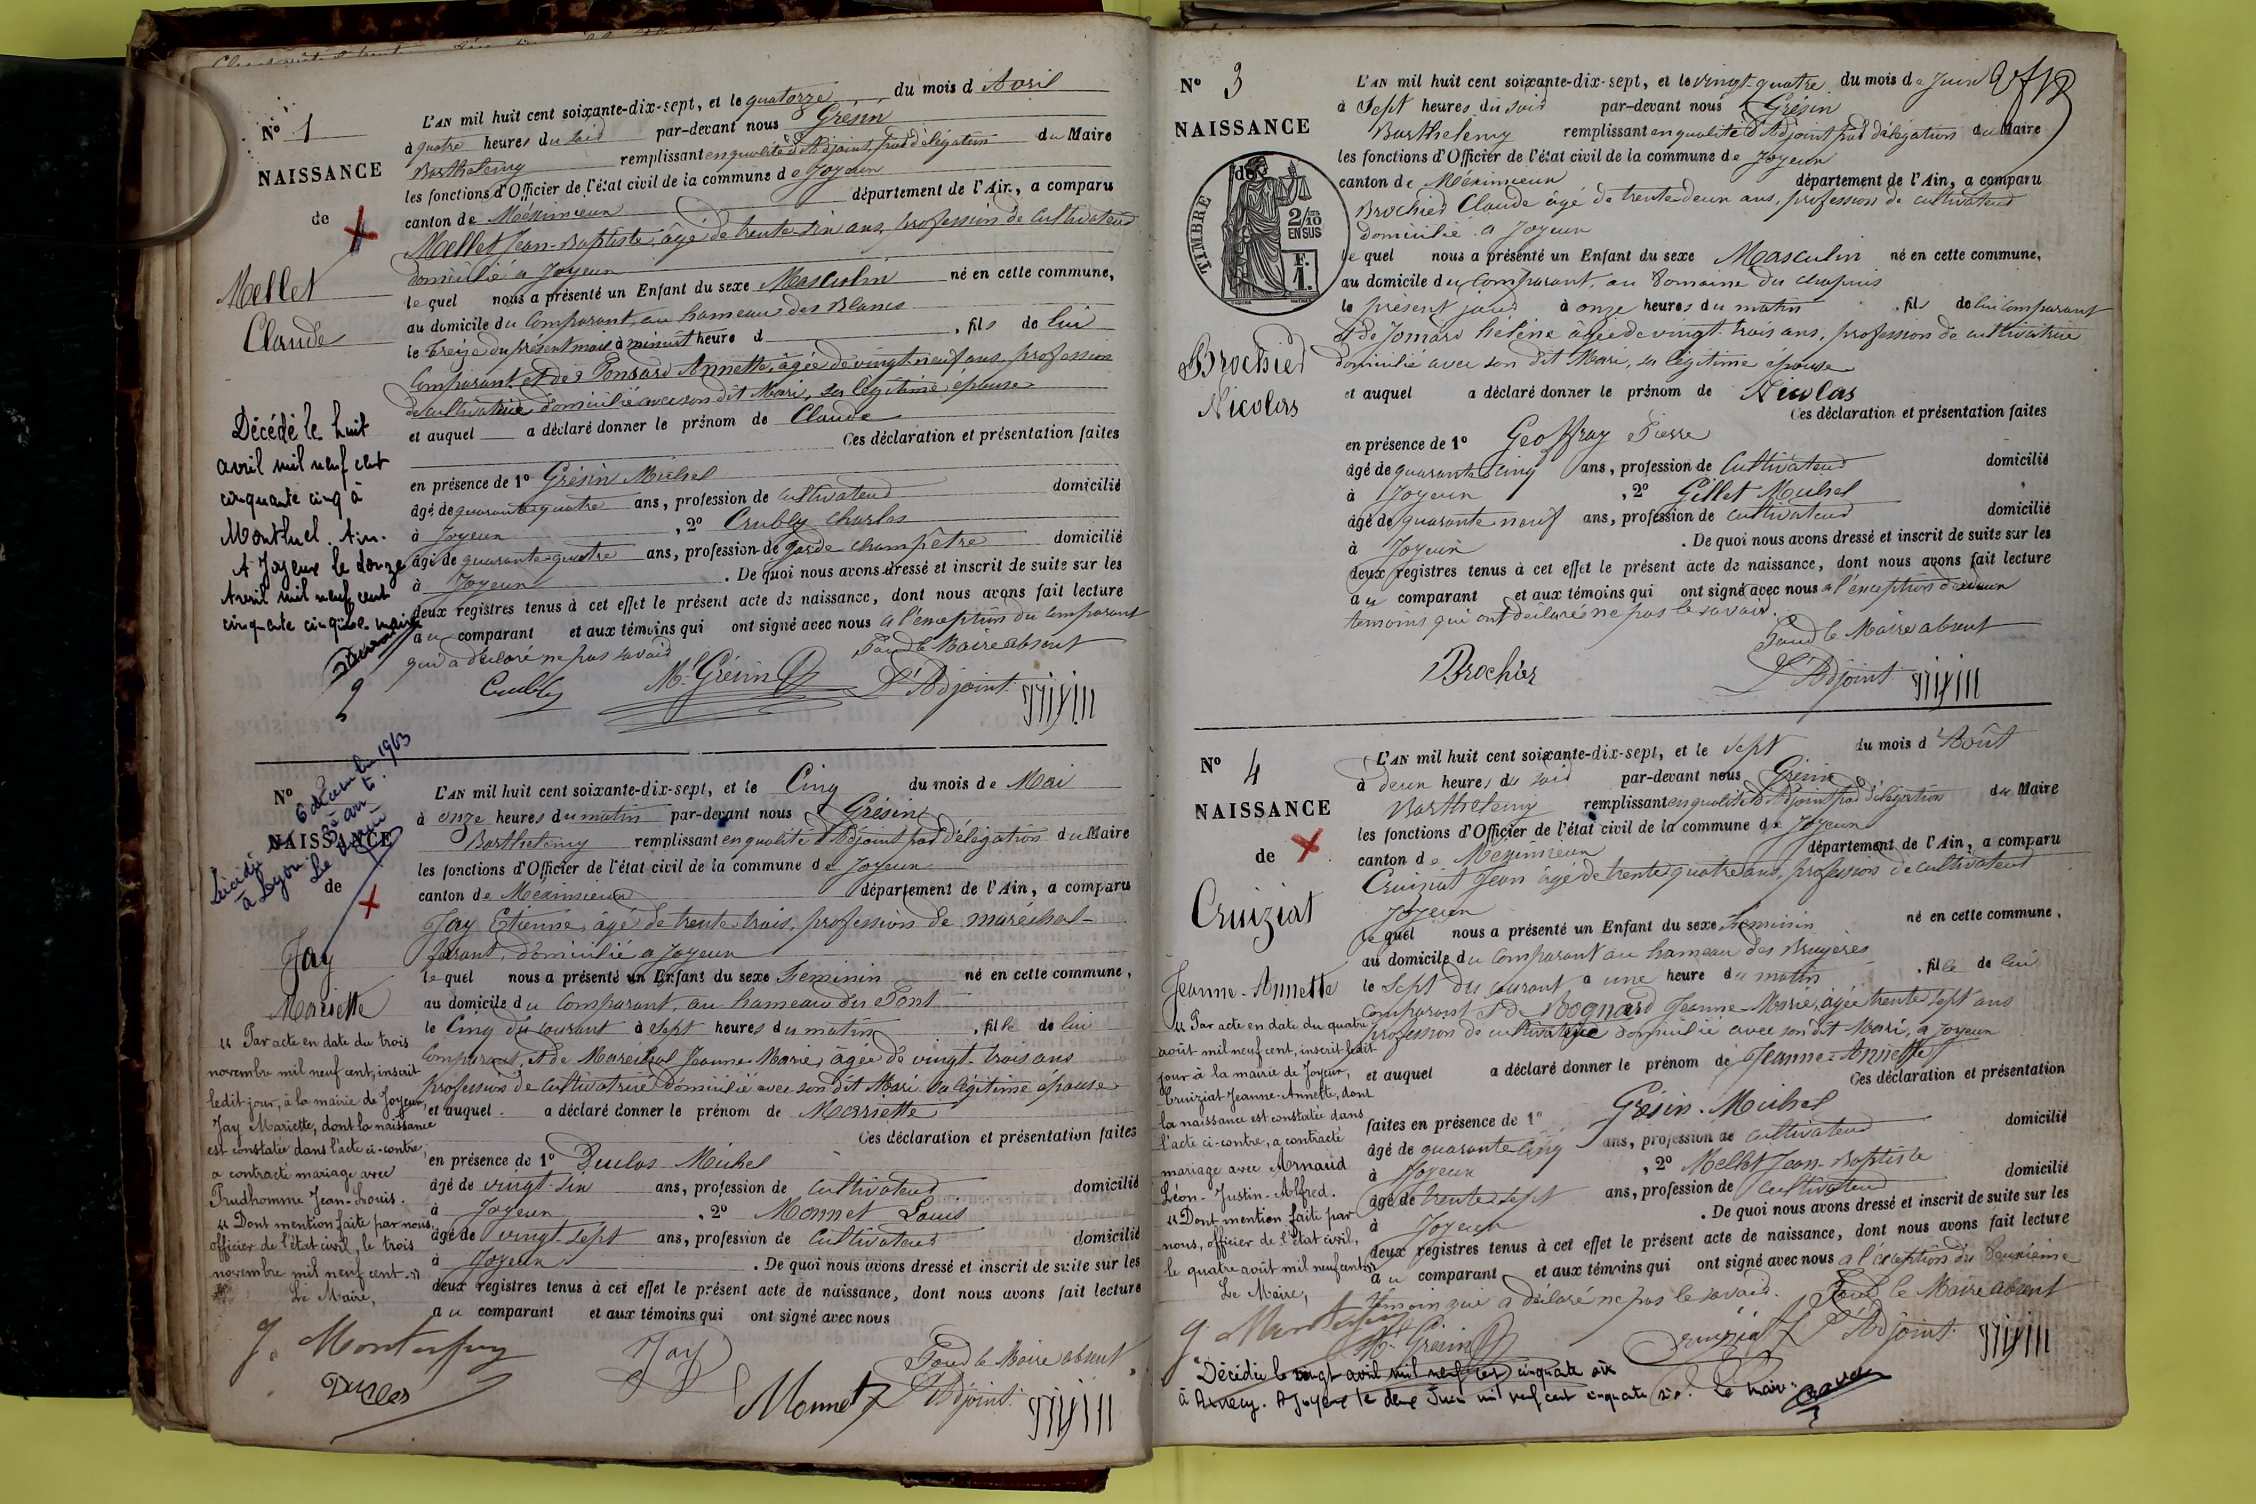 N° 1
NAISSANCE
de
Mellet
Claude
L'AN mil huit cent soixante-dix-sept, et le quatorze du mois d'Avril
à quatre heures du soir par-devant nous Grésin
Barthelemy remplissant en qualité d'Adjoint, par délégation du Maire
les fonctions d'Officier de l'état civil de la commune de Joyeux
canton de Méximieux département de l'Ain, a comparu
Mellet Jean-Baptiste, âgé de trente six ans, profession de cultivateur
domicilié a Joyeux
le quel nous a présenté un Enfant du sexe Masculin né en cette commune,
au domicile du Comparant, au hameau des Blancs
le treize du présent mois à minuit heure d , fils de lui
Comparant, et de Ponsard Annette, âgée de vingt neuf ans, profession
de cultivatrice, domicilié avec son dit Mari, sa légitime épouse
et auquel a déclaré donner le prénom de Claude
Ces déclaration et présentation faites
en présence de 1° Grésin Michel
âgé de quarante quatre ans, profession de cultivateur domicilié
à Joyeux , 2° Crubly Charles
âgé de quarante-quatre ans, profession de garde champêtre domicilié
à Joyeux . De quoi nous avons dressé et inscrit de suite sur les
deux registres tenus à cet effet le présent acte de naissance, dont nous avons fait lecture
au comparant et aux témoins qui ont signé avec nous a l'exception du Comparant
qui a déclaré ne pas savoir Pour le Maire absent
Crubly M. Grésin L'Adjoint
Décédé le huit
avril mil neuf cent
cinquante cinq à
Montluel. Ain.
A Joyeux le douze
Avril mil neuf cent
cinquante cinq Le maire
N°
NAISSANCE
de
Décédé
à Lyon
6 décembre 1963
Jay
Mariette
L'AN mil huit cent soixante-dix-sept, et le Cinq du mois de Mai
à onze heures du matin par-devant nous Grésin
Barthelemy remplissant en qualité d'Adjoint par délégation du Maire
les fonctions d'Officier de l'état civil de la commune de Joyeux
canton de Méximieux département de l'Ain, a comparu
Jay Etienne, âgé de trente trois, profession de maréchal-
ferant, domicilié a Joyeux
le quel nous a présenté un Enfant du sexe Feminin né en cette commune,
au domicile du Comparant, au hameau du Pont
le Cinq du courant à sept heures du matin , fille de lui
Comparant, et de Maréchal Jeanne Marie, âgée de vingt-trois ans
profession de cultivatrice domicilié avec son dit Mari sa légitime épouse
et auquel a déclaré donner le prénom de Marriette
Ces déclaration et présentation faites
en présence de 1° Duclos Michel
âgé de vingt-six ans, profession de Cultivateur domicilié
à Joyeux , 2° Monnet Louis
âgé de vingt-sept ans, profession de Cultivateur domicilié
à Joyeux . De quoi nous avons dressé et inscrit de suite sur les
deux registres tenus à cet effet le présent acte de naissance, dont nous avons fait lecture
au comparant et aux témoins qui ont signé avec nous
Jay Pour le Maire absent
Duclos Monnet L'Adjoint
« Par acte en date du trois
novembre mil neuf cent, inscrit
ledit jour, à la mairie de Joyeux,
Jay Mariette, dont la naissance
est constatée dans l'acte ci-contre,
a contracté mariage avec
Prudhomme Jean-Louis.
« Dont mention faite par nous,
officier de l'état civil, le trois
novembre mil neuf cent. »
Le Maire,
N° 3
NAISSANCE
de
TIMBRE
2/10
EN SUS
F.
1.
Brochier
Nicolas
L'AN mil huit cent soixante-dix-sept, et le vingt-quatre du mois de Juin
à Sept heures du soir par-devant nous Grésin
Barthelemy remplissant en qualité d'Adjoint par délégation du Maire
les fonctions d'Officier de l'état civil de la commune de Joyeux
canton de Méximieux département de l'Ain, a comparu
Brochier Claude âgé de trente deux ans, profession de cultivateur
domicilié a Joyeux
le quel nous a présenté un Enfant du sexe Masculin né en cette commune,
au domicile du Comparant, au Domaine du chapuis
le présent jour à onze heures du matin , fils de lui Comparant
et de Jomard Hélène âgée de vingt trois ans, profession de cultivatrice
domicilié avec son dit Mari, sa légitime épouse
et auquel a déclaré donner le prénom de Nicolas
Ces déclaration et présentation faites
en présence de 1° Geoffray Pierre
âgé de quarante cinq ans, profession de Cultivateur domicilié
à Joyeux , 2° Gillet Michel
âgé de quarante neuf ans, profession de cultivateur domicilié
à Joyeux . De quoi nous avons dressé et inscrit de suite sur les
deux registres tenus à cet effet le présent acte de naissance, dont nous avons fait lecture
au comparant et aux témoins qui ont signé avec nous a l'exception des deux
temoins qui ont déclaré ne pas le savoir.
Pour le Maire absent
Brochier L'Adjoint
N° 4
NAISSANCE
de
Cruiziat
Jeanne-Annette
L'AN mil huit cent soixante-dix-sept, et le sept du mois d'Août
à deux heures du soir par-devant nous Grésin
Barthelemy remplissant en qualité d'Adjoint par délégation du Maire
les fonctions d'Officier de l'état civil de la commune de Joyeux
canton de Méximieux département de l'Ain, a comparu
Cruiziat Jean âgé de trente quatre ans, profession de cultivateur
Joyeux
le quel nous a présenté un Enfant du sexe Feminin né en cette commune,
au domicile du Comparant au hameau des Bruyères
le Sept du courant à une heure du matin , fille de lui
Comparant et de Mognard Jeanne-Marie, âgée trente sept ans
profession de cultivatrice domicilié avec son dit Mari, a Joyeux
et auquel a déclaré donner le prénom de Jeanne-Annette
Ces déclaration et présentation
faites en présence de 1° Grésin Michel
âgé de quarante cinq ans, profession de cultivateur domicilié
à Joyeux , 2° Mellet Jean-Baptiste
âgé de trente sept ans, profession de cultivateur domicilié
à Joyeux . De quoi nous avons dressé et inscrit de suite sur les
deux registres tenus à cet effet le présent acte de naissance, dont nous avons fait lecture
au comparant et aux témoins qui ont signé avec nous a l'exception du deuxième
témoin qui a déclaré ne pas le savoir. Pour le Maire absent
M. Grésin Cruiziat L'Adjoint
« Par acte en date du quatre
août mil neuf cent, inscrit ledit
jour à la mairie de Joyeux,
Cruiziat Jeanne-Annette, dont
la naissance est constatée dans
l'acte ci-contre, a contracté
mariage avec Arnaud
Léon-Justin-Alfred.
« Dont mention faite par
nous, officier de l'état civil,
le quatre août mil neuf cent. »
Le Maire,
Décédée le vingt avril mil neuf cent cinquante six
à Annecy. A Joyeux le deux Juin mil neuf cent cinquante six. Le maire